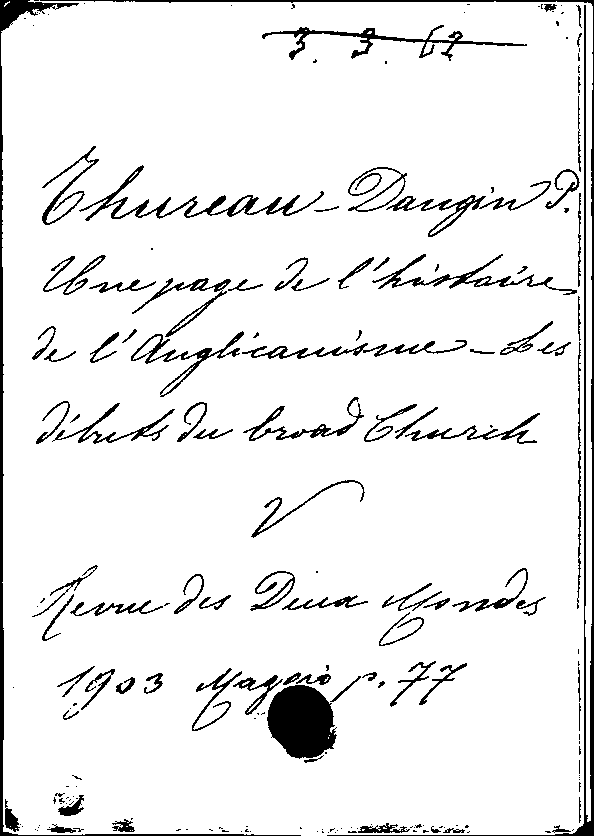 3. 3. 62
Thureau-Dangin P.
Une page de l'histoire
de l'Anglicanisme - Les
débuts du broad Church
V
Revue des Deux Mondes
1903 Maggio p. 77